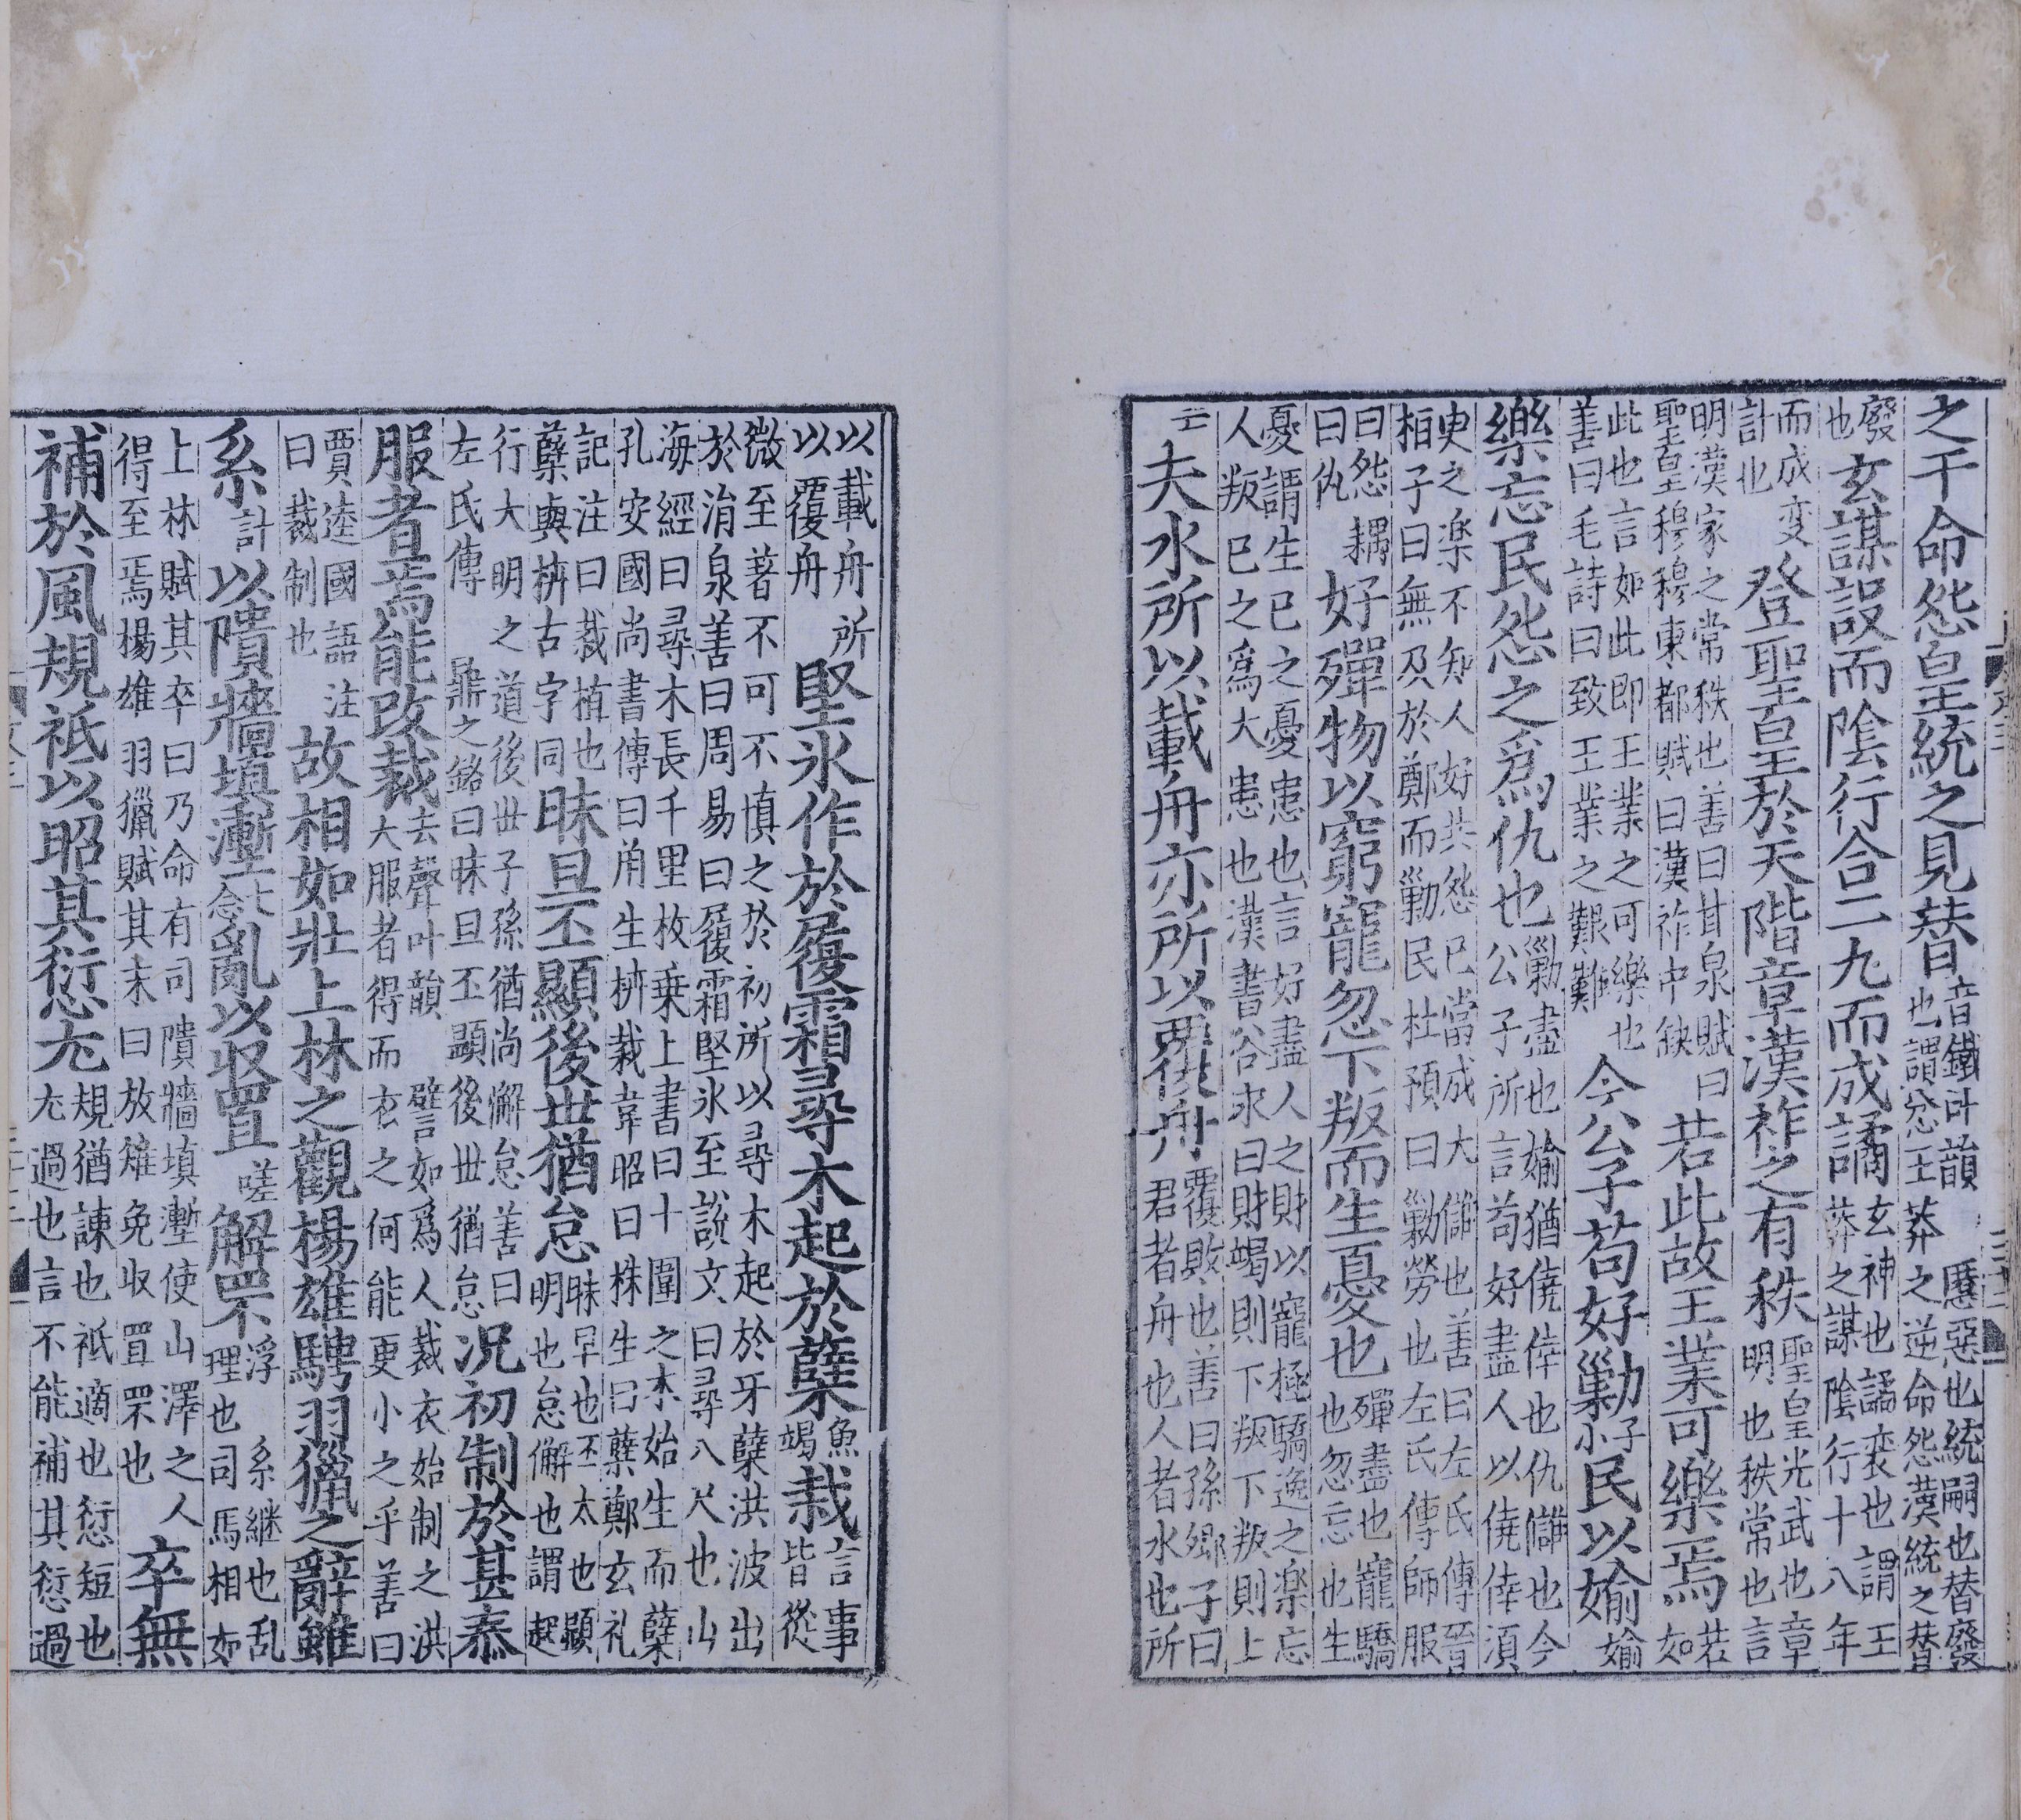 之干命怨皇統之見替音鐵叶韻慝惡也統嗣也替廢也謂忿王莽之逆命怨漢統之替
廢也玄謀設而陰行合二九而成譎玄神也譎变也謂王莽之謀陰行十八年
而成变計也登聖皇於天階章漢祚之有秩聖皇光武也章明也秩常也言
明漢家之常秩也善曰甘泉賦曰聖皇穆穆東都賦曰漢祚中缺若此故王業可樂焉若如
此也言如此此即王業之可樂也善曰毛詩曰致王業之艱難今公子苟好勦子小民以媮媮
樂忘民怨之為仇也勦盡也媮猶僥倖也仇讎也今公子所言苟好盡人以僥倖須
臾之楽不知人好共怨已當成大讎也善曰左氏傳晉桓子曰無及於鄭而勦民杜預曰勦勞也左氏傳師服
曰怨耦曰仇好殫物以窮寵忽下叛而生憂也殫盡也寵驕也忽忘也生
憂謂生已之憂患也言好盡人之財以寵極驕逸之楽忘人叛已之為大患也漢書谷永曰財竭則下叛下叛則上
亡夫水所以載舟亦所以覆舟覆敗也善曰孫卿子曰君者舟也人者水也所
以載舟所以覆舟堅氷作於履霜尋木起於蘖魚竭栽言事皆從
微至著不可不慎之於初所以尋木起於牙蘖洪波出於涓泉善曰周易曰履霜堅氷至說文曰尋八尺也山
海經曰尋木長千里枚乗上書曰十圍之木始生而蘖孔安國尚書傳曰顛木生枿栽韋昭曰株生曰蘖鄭玄礼
記注曰栽植也蘖與枿古字同昧旦丕顯後世猶怠昧早也丕大也顯明也怠懈也謂起
行大明之道後世子孫猶尚懈怠善曰左氏傳鼎之銘曰昧旦丕顯後世猶怠況初制於甚泰
服者焉能改裁去聲叶韻譬如爲人裁衣始制之洪大服者得而衣之何能更小之乎善曰
賈逵國語注曰裁制也故相如壯上林之觀楊雄騁羽獵之辭雖
系計以隤牆填壍七念亂以收罝嗟解罘浮系継也乱理也司馬相如
上林賦其卒曰乃命有司隤牆填壍使山澤之人得至焉楊雄羽獵賦其末曰放雉兔收罝罘也卒無
補於風規祇以昭其愆尤規猶諫也祇適也愆短也尤過也言不能補其愆過